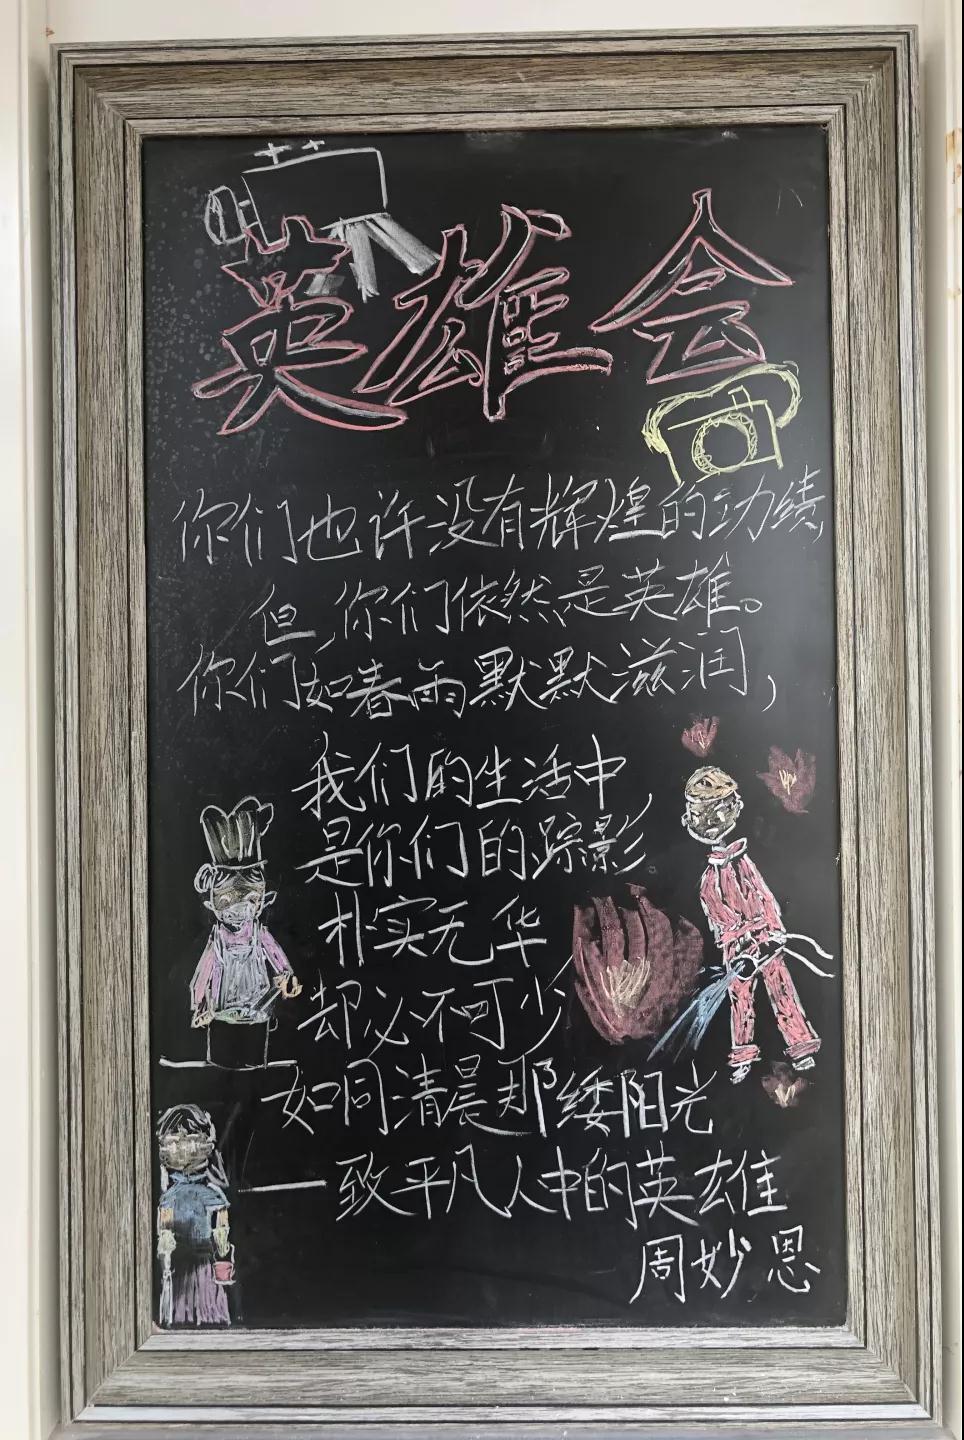 英雄会
你们也许没有辉煌的功绩,
但,你们依然是英雄。
你们如春雨默默滋润,
我们的生活中,
是你们的踪影。
朴实无华
却必不可少
如同清晨那缕阳光
—致平凡人中的英雄
周妙恩